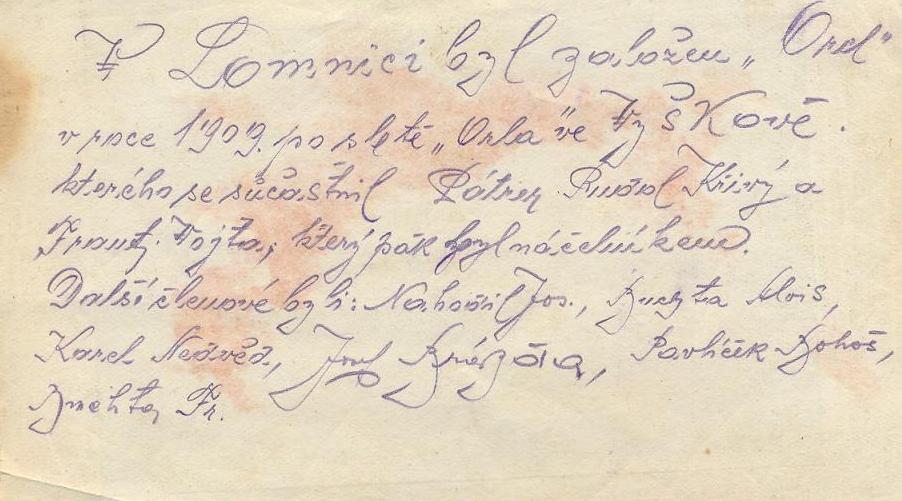 V Lomnici byl založen „Orel"
v roce 1909. po sletě „Orla" ve Vyškově.
kterého se súčastnil Páter Rudol Křivý a
Frant. Vojta, který pák byl náčelníkem.
Další členové byli: Nahodil Jos., Buchta Alois,
Karel Nedvěd, Josef Pavlíček Bohoš,
Buchta Fr.